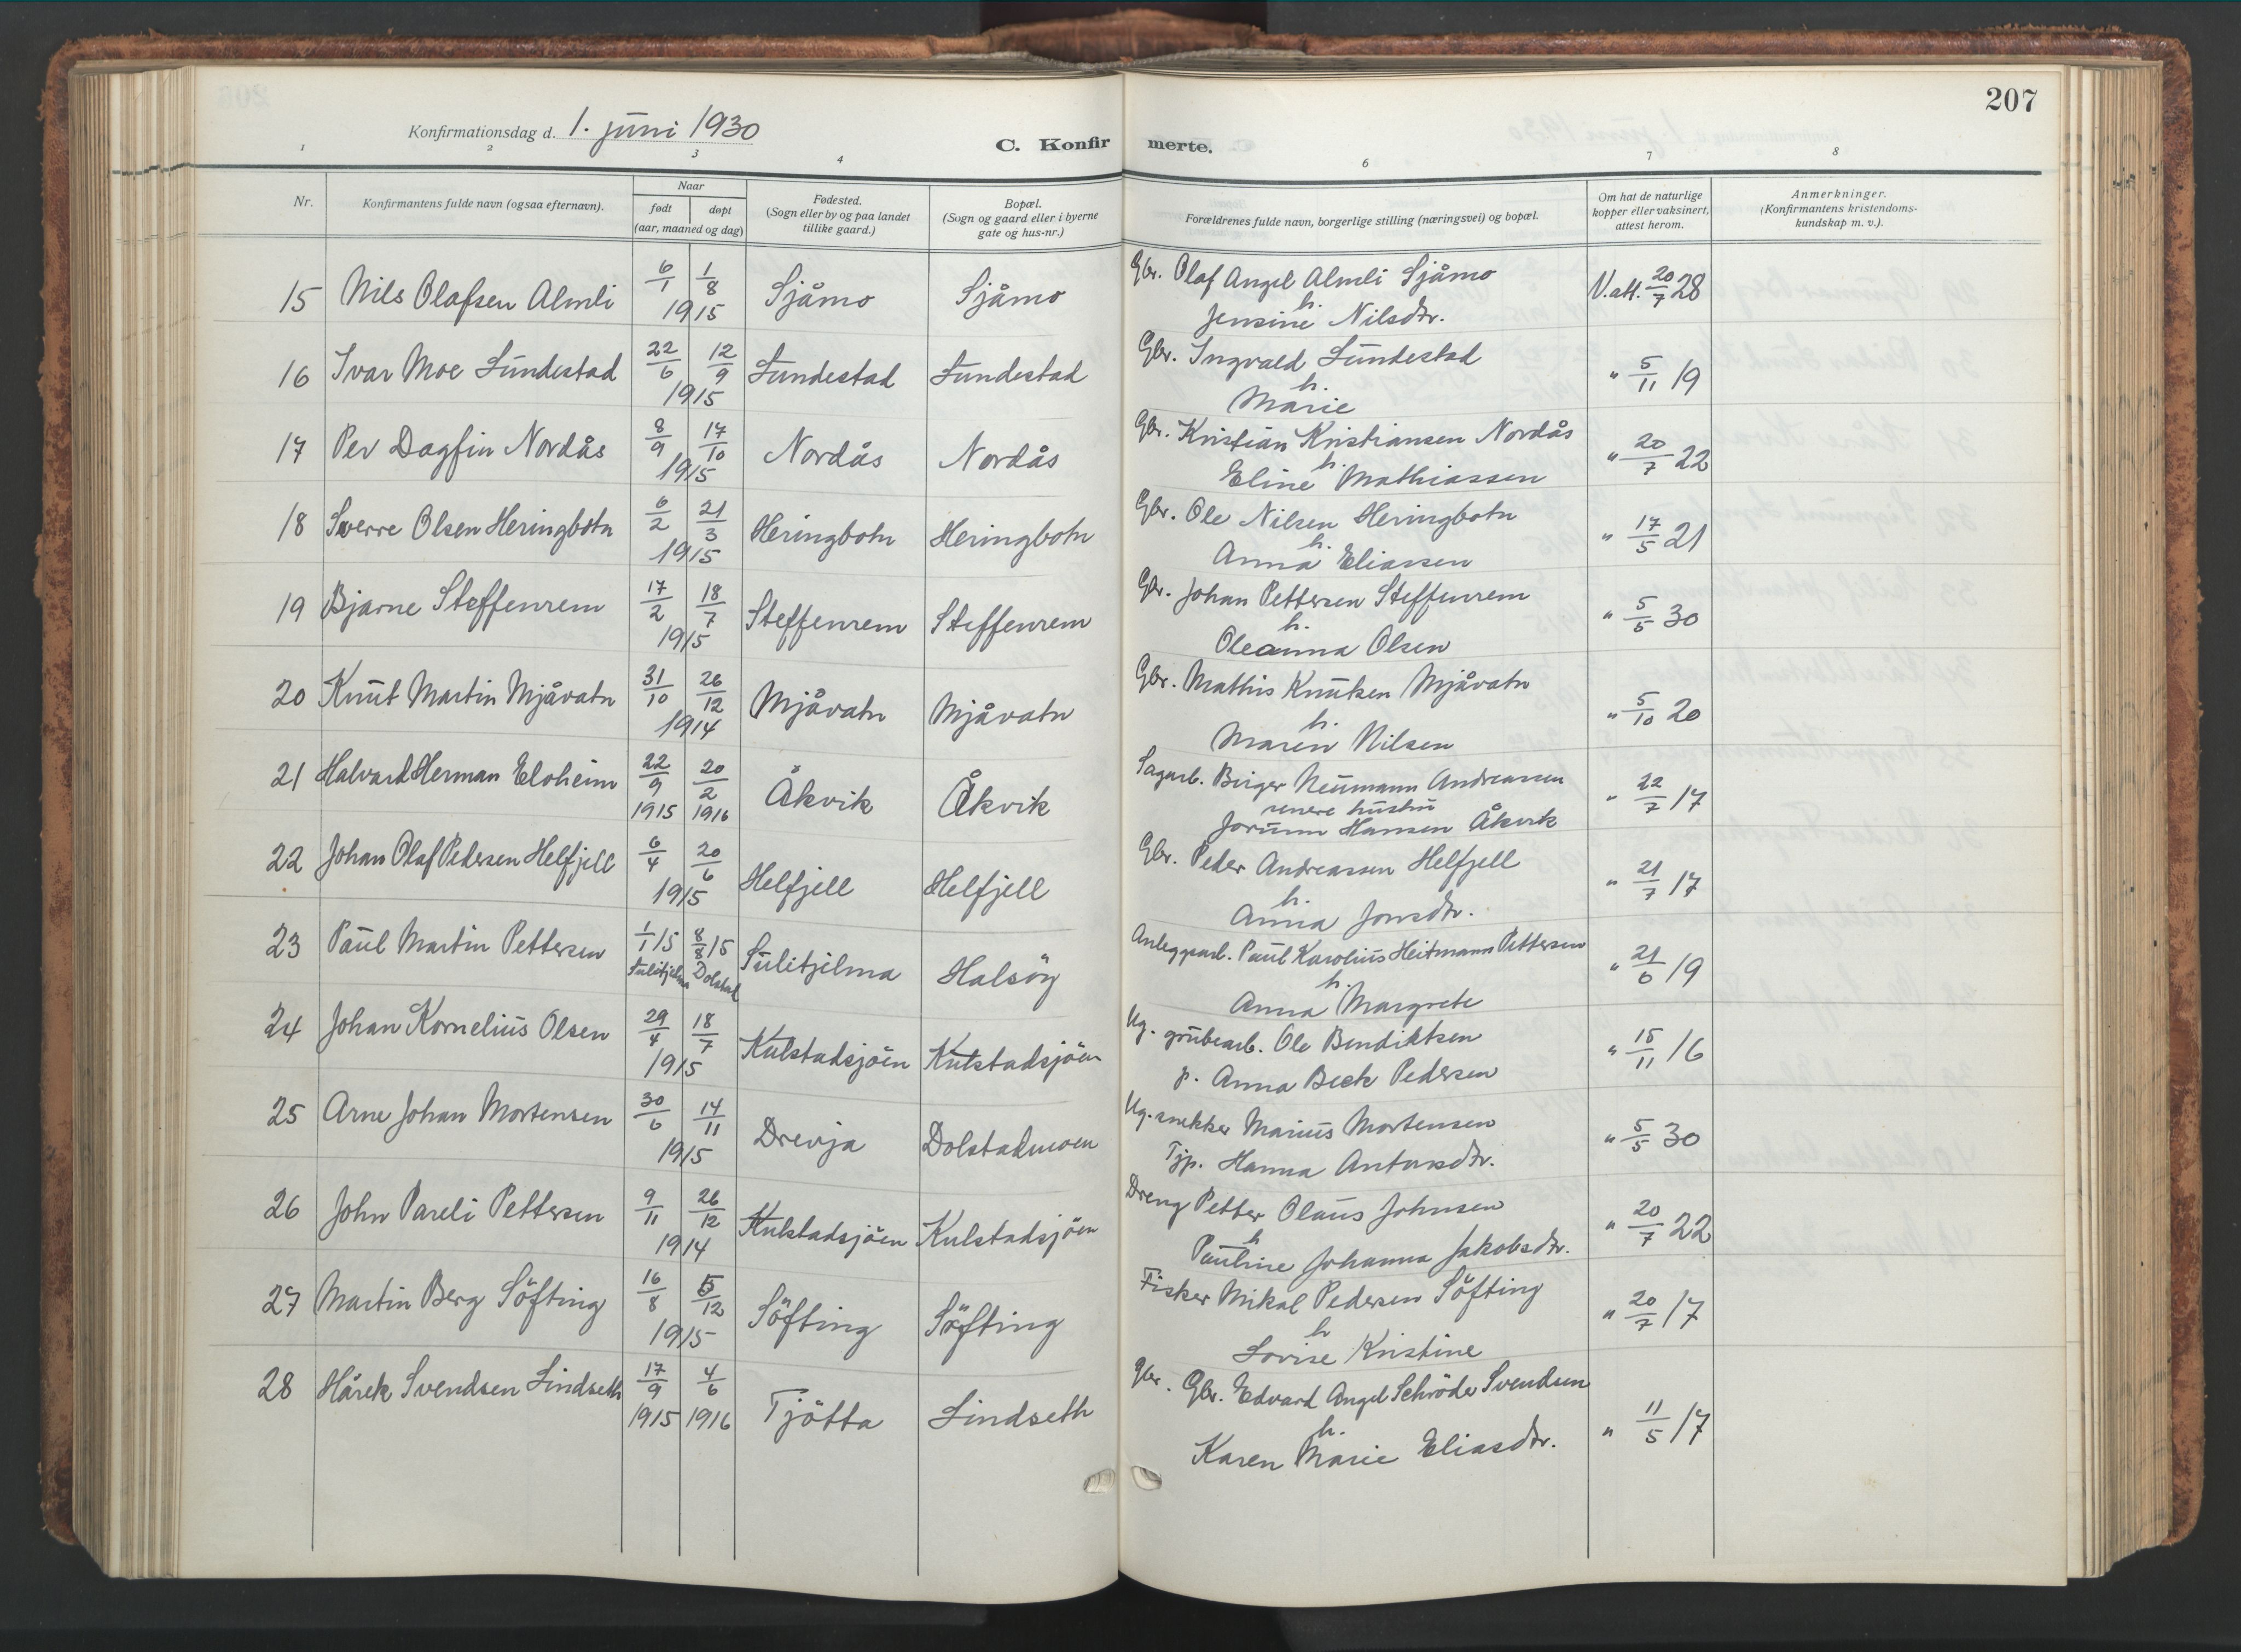 207
Konfirmationsdag d. 1. juni 1930
C. Konfirmerte.
1 2 3 4 6 7 8
Nr.
Konfirmantens fulde navn (ogsaa efternavn).
Naar
født døpt
(aar, maaned og dag)
Fødested.
(Sogn eller by og paa landet
tillike gaard.)
Bopæl.
(Sogn og gaard eller i byerne
gate og hus-nr.)
Forældrenes fulde navn, borgerlige stilling (næringsvei) og bopæl.
Om hat de naturlige
kopper eller vaksinert,
attest herom.
Anmerkninger.
(Konfirmantens kristendoms-
kundskap m. v.).
15 Nils Olafsen Almli 6/1 1/8 1915 Sjåmo Sjåmo Gbr. Olaf Angel Almli Sjåmo V.att. 20/7 28
h.
Jensine Nilsdtr.
16 Ivar Moe Lundestad 22/6 12/9 1915 Lundestad Lundestad Gbr. Ingvald Lundestad " 5/11 19
h.
Marie
17 Per Dagfin Nordås 8/9 17/10 1915 Nordås Nordås Gbr. Kristian Kristiansen Nordås " 20/7 22
h.
Eline Mathiassen
18 Sverre Olsen Heringbotn 6/2 21/3 1915 Heringbotn Heringbotn Gbr. Ole Nilsen Heringbotn " 17/5 21
h.
Anna Eliassen
19 Bjarne Steffenrem 17/2 18/7 1915 Steffenrem Steffenrem Gbr. Johan Pettersen Steffenrem " 5/5 30
h.
Oleanna Olsen
20 Knut Martin Mjåvatn 31/10 26/12 1914 Mjåvatn Mjåvatn Gbr. Mathis Knutsen Mjåvatn " 5/10 20
h.
Maren Nilsen
21 Halvard Herman Eloheim 22/9 1915 20/2 1916 Åkvik Åkvik Sagarb. Birger Neumann Andreassen " 22/7 17
senere hustru
Jorunn Hansen Åkvik
22 Johan Olaf Pedersen Helfjell 6/4 20/6 1915 Helfjell Helfjell Gbr. Peder Andreassen Helfjell " 21/7 17
h.
Anna Jonsdtr.
23 Paul Martin Pettersen 1/1 15 Sulitjelma 8/8 15 Dolstad Sulitjelma Halsøy Anleggsarb. Paul Karolius Heitmann Pettersen " 21/6 19
h.
Anna Margrete
24 Johan Kornelius Olsen 29/4 18/7 1915 Kulstadsjöen Kulstadsjöen Ug. grubearb. Ole Bendiktsen " 15/11 16
p. Anna Beck Pedersen
25 Arne Johan Mortensen 30/6 14/11 1915 Drevja Dolstadmoen Ug. snekker Marius Mortensen " 5/5 30
Tjp. Hanna Antonsdtr.
26 John Pareli Pettersen 9/11 26/12 1914 Kulstadsjöen Kulstadsjöen Dreng Petter Olaus Johnsen " 20/7 22
h
Pauline Johanna Jakobsdtr.
27 Martin Berg Söfting 16/8 5/12 1915 Söfting Söfting Fisker Mikal Pedersen Söfting " 20/7 17
h
Lovise Kristine
28 Hårek Svendsen Lindseth 17/9 1915 4/6 1916 Tjötta Lindseth Gbr. Gbr. Edvard Angel Schröder Svendsen " 11/5 17
h.
Karen Marie Eliasdtr.